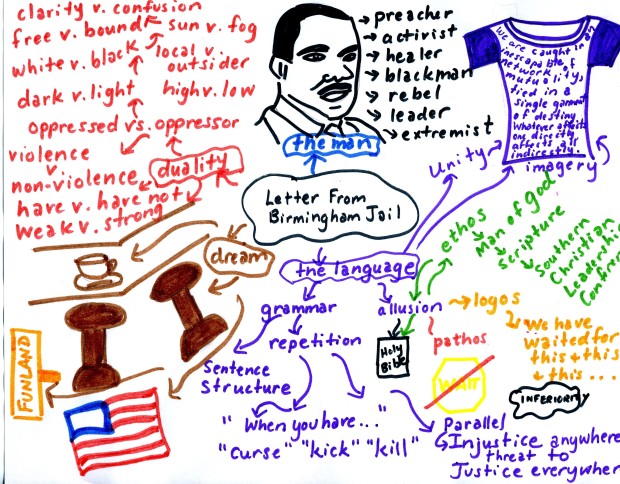 clarity v. confusion
free v. bound
sun v. fog
white v. black
local v.
outsider
dark v. light
high v. low
oppressed vs. oppressor
violence
v.
non-violence
duality
have v. have not
weak v. strong
preacher
activist
healer
blackman
rebel
leader
extremist
the man
Letter From
Birmingham Jail
we are caught in an
inescapable
network of
mutuality,
tied in a
single garment
of destiny.
Whatever affects
one directly
affects all
indirectly.
imagery
unity
dream
FUNLAND
the language
grammar
Sentence
Structure
repetition
"When you have..."
"curse" "kick" "kill"
Parallel
Injustice anywhere
threat to
Justice everywhere
allusion
Holy
Bible
ethos
Man of god
Scripture
Southern
Christian
Leadership
logos
We have
waited for
this + this
+ this...
pathos
INFERIORITY